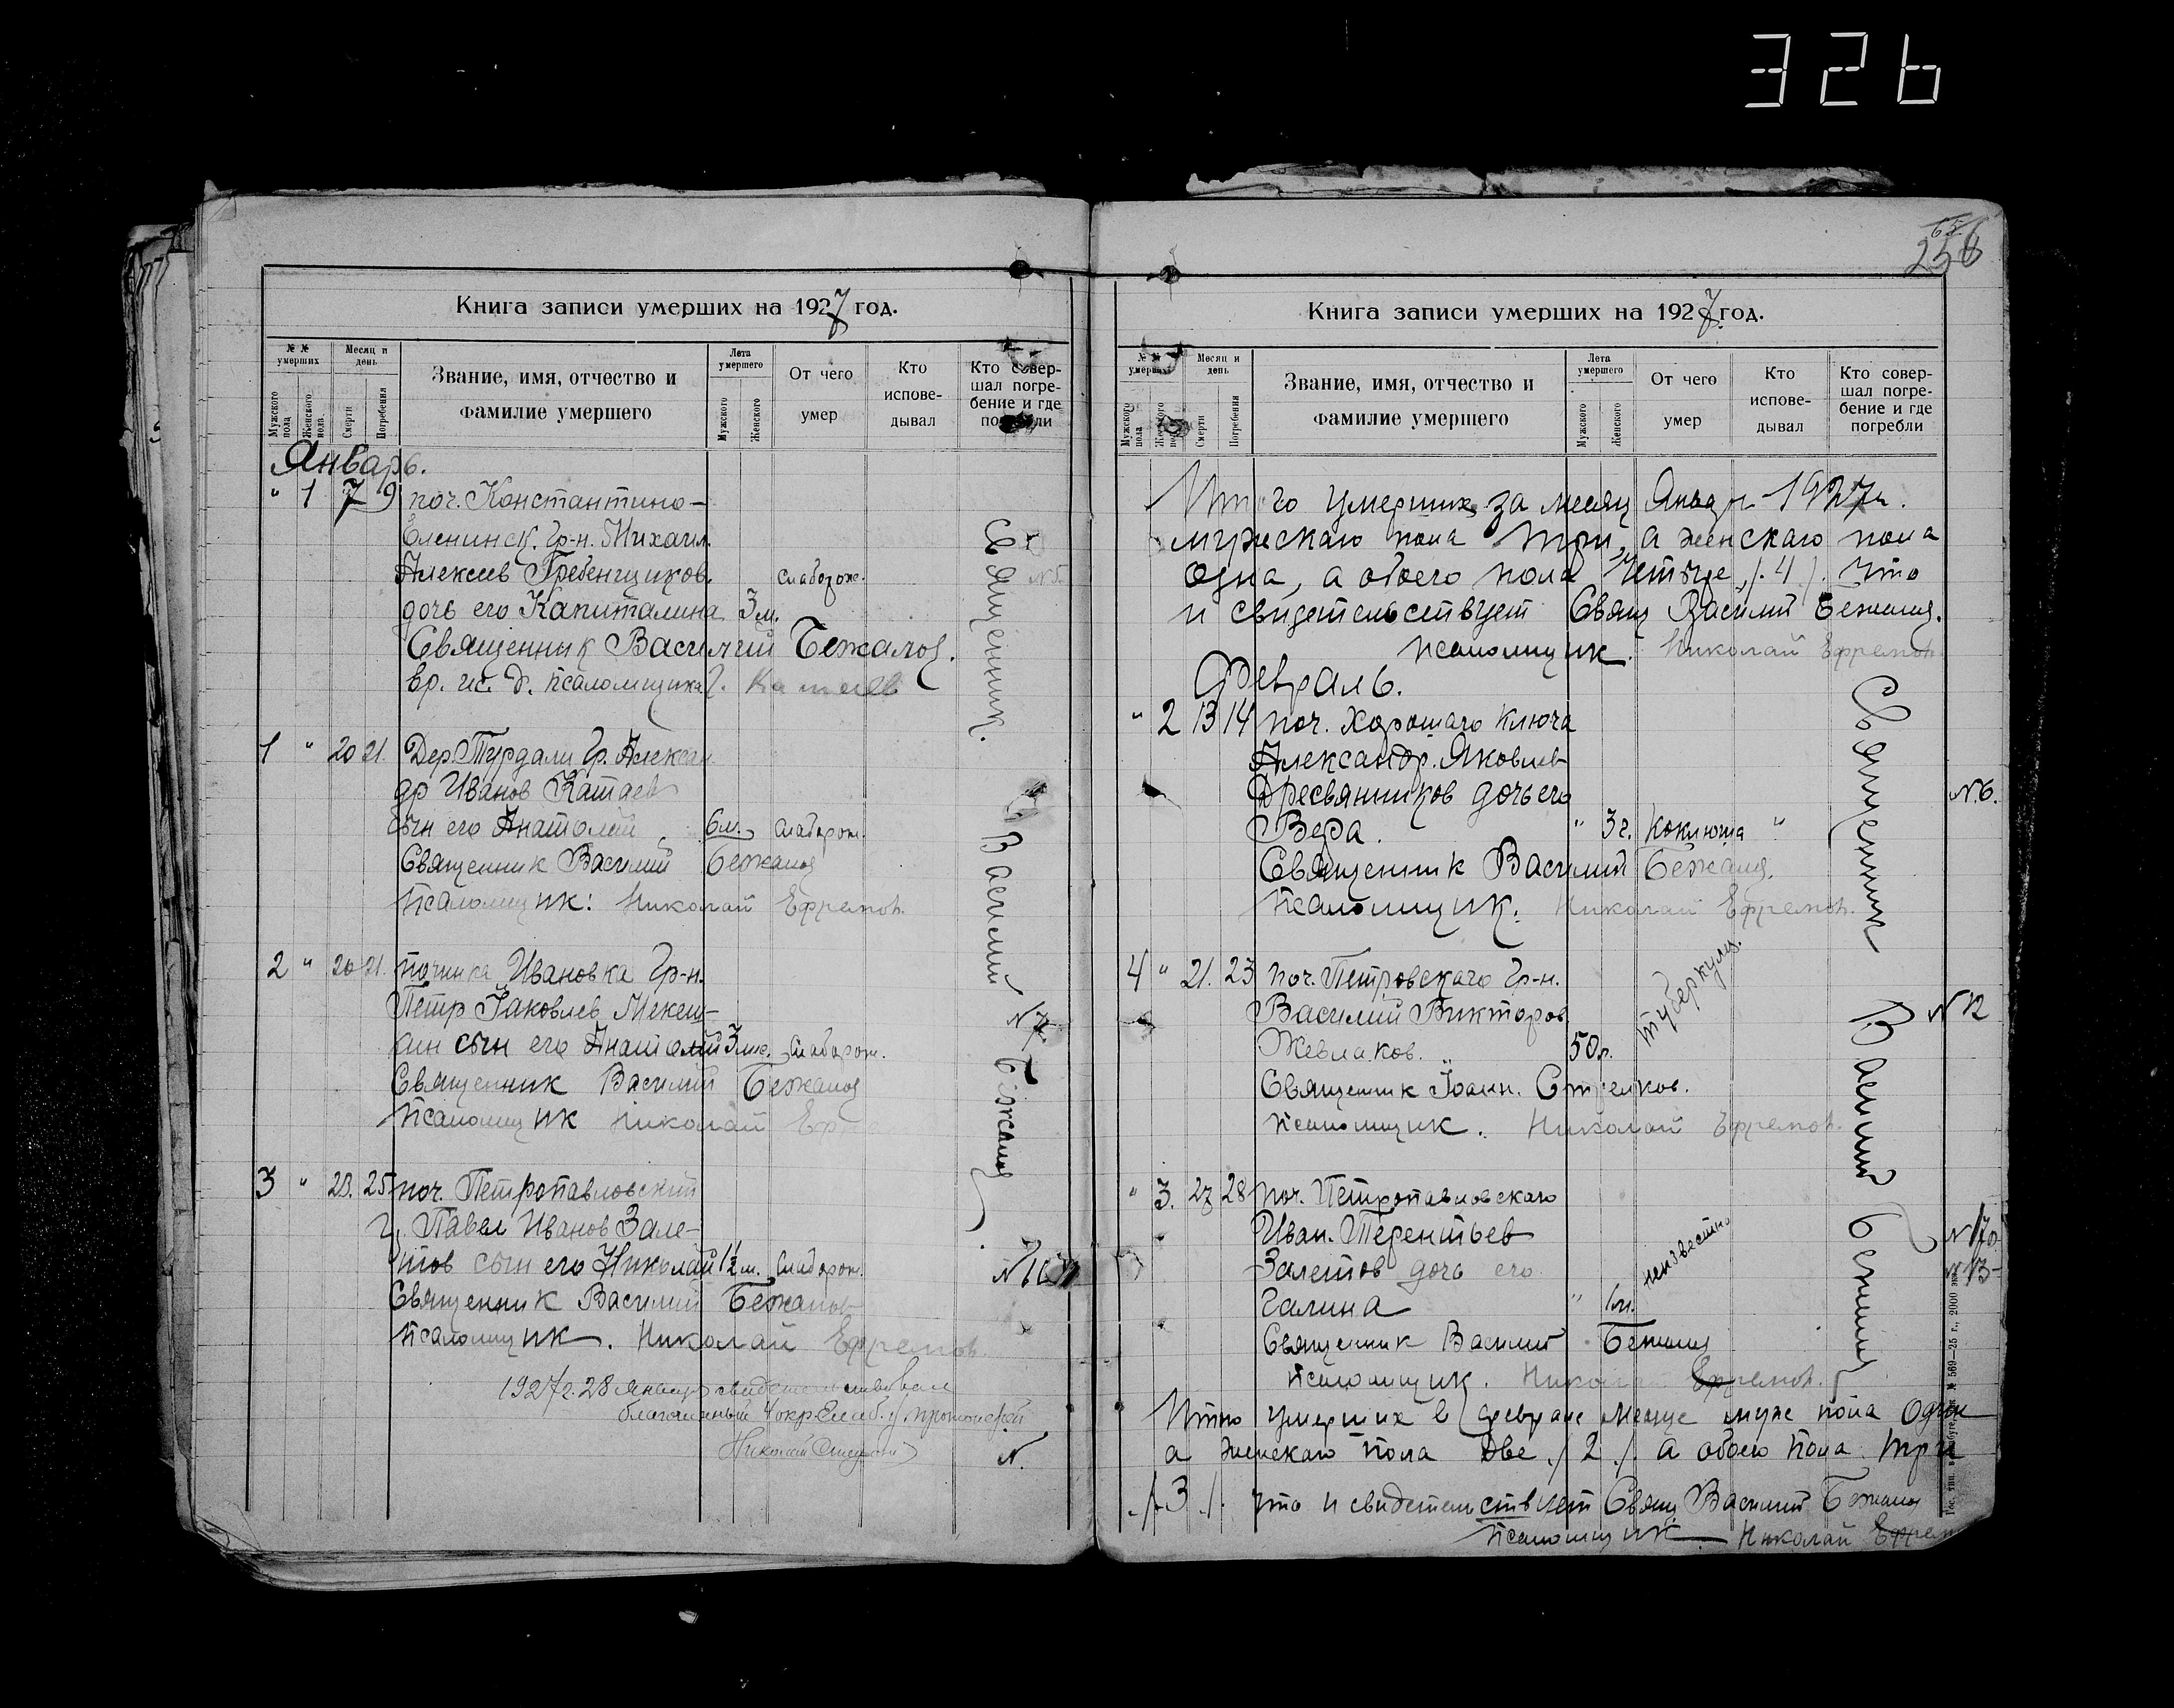 326
Книга записи умерших на 1927 год.
№ № умерших
Месяц и день
Звание, имя, отчество и фамилие умершего
Лета умершего
От чего умер
Кто исповедывал
Кто совершал погребение и где погребли
Мужского пола
Женского пола.
Смерти
Погребения
Мужского
Женского
Январь.
" 1 7 9 поч. Константино-
Еленинск. Гр-н. Михаил.
Алексеев Гребенщиков. слаборож.
дочь его Капиталина 3 м.
Священник Василий Бежанов.
вр. ис. д. псаломщика
1 " 20 21. Дер. Турдали Гр. Алексан-
др Иванов Катаев
сын его Анатолий 6 м. слаборож.
Священник Василий Бежанов
Псаломщик: Николай Ефремов.
2 " 20 21. починка Ивановка Гр-н.
Петр Яковлев Мекеш-
ин сын его Анатолий 3 м. слаборож.
Священник Василий Бежанов
Псаломщик Николай
3 " 23. 25 поч. Петропавловский
Павел Иванов Зале-
тов сын его Николай 1½ м. слаборож.
Священник Василий Бежанов
Псаломщик. Николай Ефремов.
1927 г. 28 января свидетельствовал
благочинный 4 окр. Елаб. у протоиерей
Николай
Священник. Василий Бежанов.
N 5.
N 7.
N.
256
Книга записи умерших на 1927 год.
№ № умерших
Месяц и день
Звание, имя, отчество и фамилие умершего
Лета умершего
От чего умер
Кто исповедывал
Кто совершал погребение и где погребли
Мужского пола
Женского пола
Смерти
Погребения
Мужского
Женского
Итого умерших за месяц Январь 1927 г.
мужскаго пола три, а женскаго пола
одна, а обоего пола четыре /. 4 /. Что
и свидетельствует Свящ Василий Бежанов.
псаломщик. Николай Ефремов
Февраль.
" 2 13 14 поч. Хорошаго Ключа
Александр. Яковлев
Дресвянников дочь его
Вера. " 3 г. коклюша "
Священник Василий Бежанов.
Псаломщик. Николай Ефремов.
4 " 21. 23 поч. Петровскаго Гр-н.
Василий Викторов
Жевлаков. 50 л. туберкулез.
Священник Іоанн. Стрелков.
Псаломщик. Николай Ефремов.
" 3. 27 28 поч. Петропавловскаго
Иван. Терентьев
Залетов дочь его неизвестно
Галина " 1 м.
Священник Василий Бежанов
Псаломщик. Николай Ефремов.
Итого умерших в феврале месяце муж пола один
а женскаго пола две /. 2 /. а обоего пола три
/. 3 /. что и свидетельствует Свящ. Василий Бежанов
Псаломщик Николай Ефрем
Священник Василий Бежанов
N. 6.
N 12
N 13